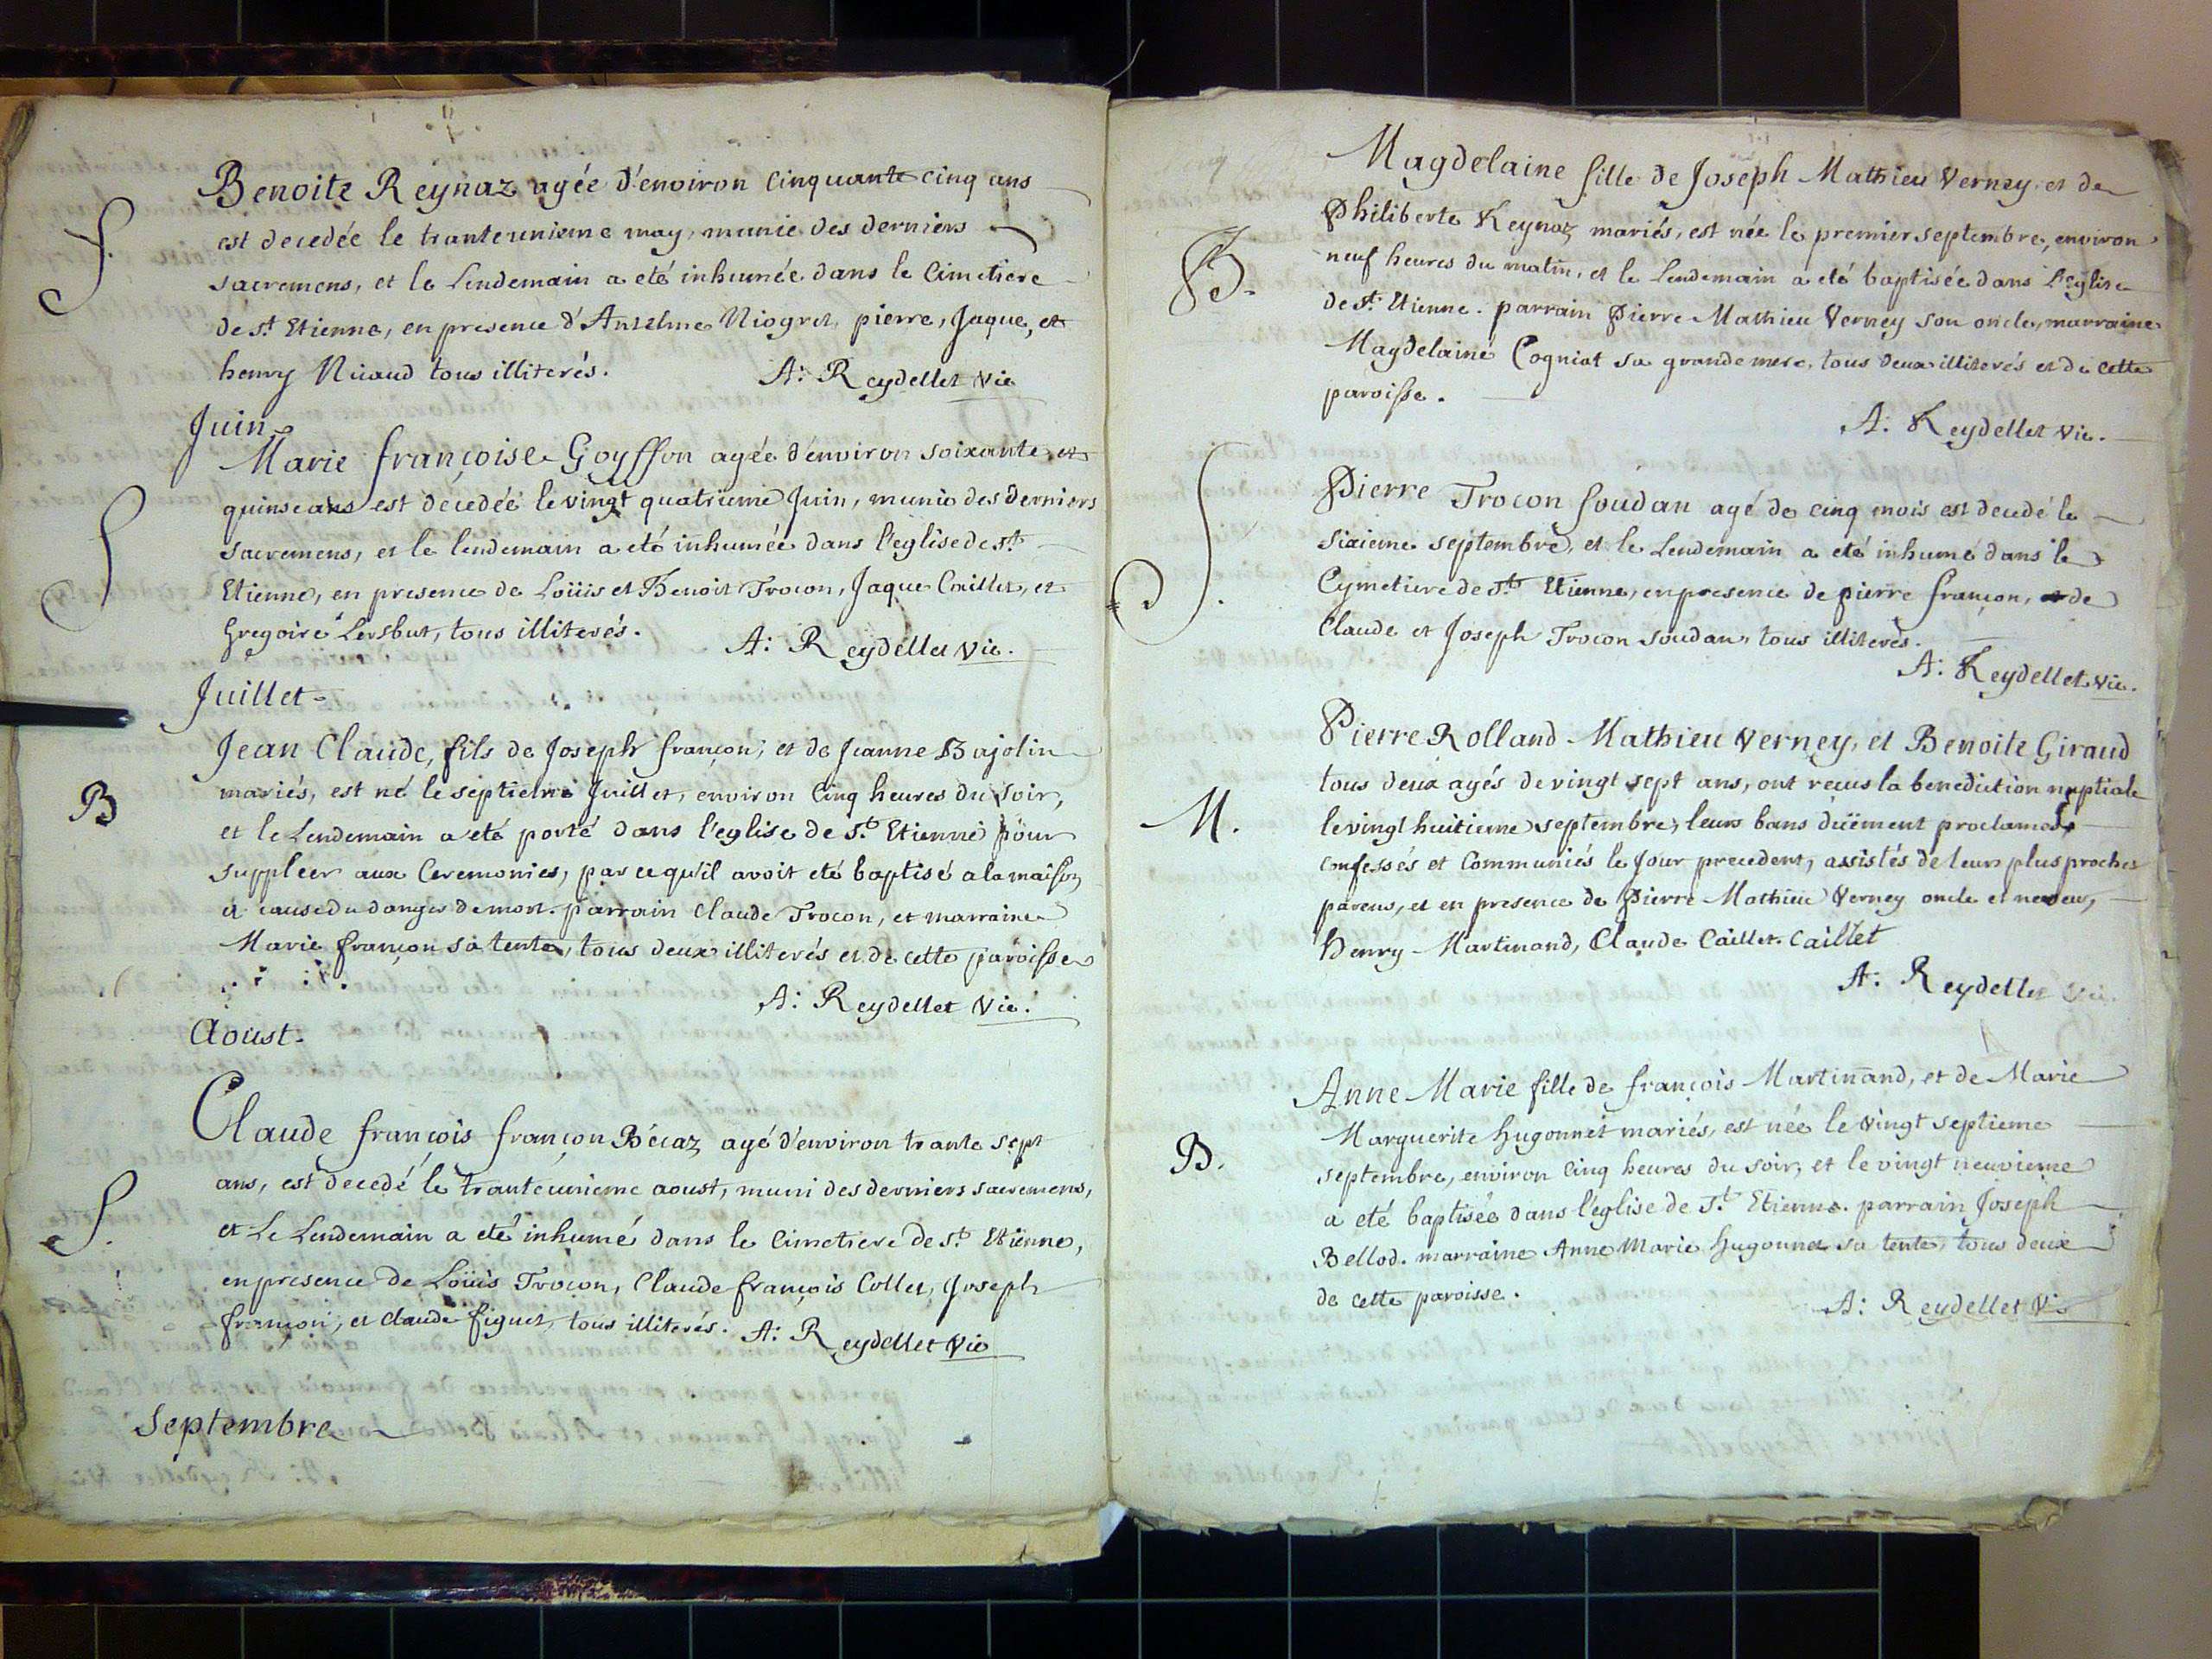 Benoite Reynaz agée d'environ cinquante cinq ans
S.
est decedée le tranteunieme may, munie des derniers
sacremens, et le Lendemain a eté inhumée dans le Cimetiere
de st Etienne, en presence d'Anselme Niogret, pierre, Jaque, et
henry Nicaud tous illiterés.
A: Reydellet vic
Juin
Marie françoise Goyffon agée d'environ soixante et
S
quinse ans est decedée le vingt quatrieme Juin, munie des derniers
sacremens, et le lendemain a eté inhumée dans l'eglise de st
Etienne, en presence de Loüis et Benoit Trocon, Jaque Caillet, et
Gregoire Lersbut, tous illiterés.
A: Reydellet vic.
Juillet
Jean Claude, fils de Joseph françon, et de Jeanne Bajolin
B
mariés, est né le septieme Juillet, environ Cinq heures du soir,
et le Lendemain a eté porté dans l'eglise de St Etienne pour
suppleer aux Ceremonies, par ce qu'il avoit eté baptisé a la maison
a cause du danger de mort. parrain Claude Trocon, et marraine
Marie françon sa tente, tous deux illiterés et de cette paroisse
A: Reydellet vic.
Aoust.
Claude françois françon Bécaz agé d'environ trante sept
S.
ans, est decedé le tranteunieme aoust, muni des derniers sacremens,
et Le Lendemain a eté inhumé dans le Cimetiere de St Etienne,
en presence de Loüis Trocon, Claude françois Collet, Joseph
françon, et claude figuet, tous illiterés.
A: Reydellet vic
Septembre
Magdelaine fille de Joseph Mathieu Verney et de
B.
Philiberte Reynaz mariés, est née le premier septembre, environ
neuf heures du matin, et le Lendemain a eté baptisée dans L'eglise
de st Etienne. parrain Pierre Mathieu Verney son oncle, marraine
Magdelaine Cogniat sa grande mere, tous deux illiterés et de cette
paroisse.
A: Reydellet vic.
Pierre Trocon Soudan agé de cinq mois est decedé le
S.
sixieme septembre, et le Lendemain a eté inhumé dans le
Cymetiere de St Etienne, en presence de pierre françon, de
Claude et Joseph Trocon soudan, tous illiterés.
A: Reydellet vic.
Pierre Rolland Mathieu Verney, et Benoite Giraud
M.
tous deux agés de vingt sept ans, ont recus la benediction nuptiale
le vingt huitieme septembre, leurs bans düement proclamés,
confessés et Communiés le Jour precedent, assistés de leurs plus proches
parens, et en presence de Pierre Mathieu Verney oncle et neveu,
henry Martinand, Claude Caillet. Caillet
A: Reydellet vic.
Anne Marie fille de françois Martinand, et de Marie
B.
Marguerite hugonnet mariés, est née le vingt septieme
septembre, environ Cinq heures du soir, et le vingt neuvieme
a eté baptisée dans l'eglise de St Etienne. parrain Joseph
Bellod. marraine Anne Marie hugonnet sa tente, tous deux
de cette paroisse.
A: Reydellet vic